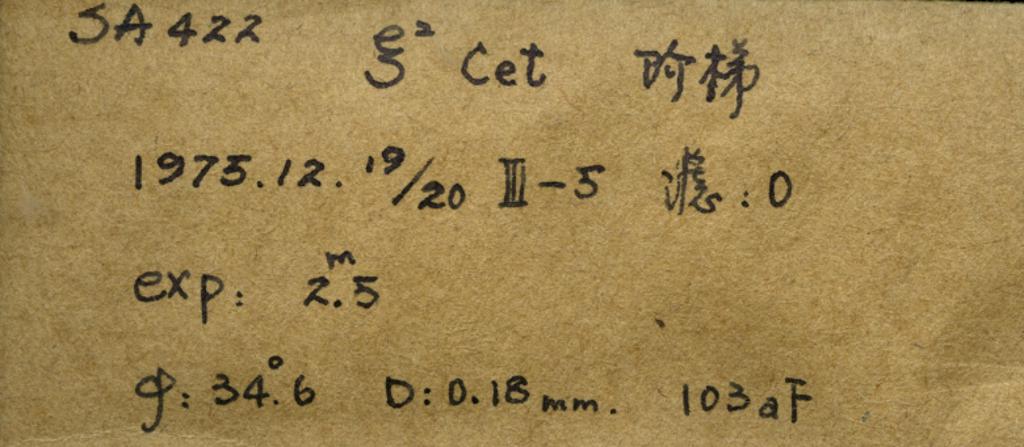 SA 422 ξ² Cet 阶梯
1975.12.19/20 III-5 滤:0
exp: 2ᵐ.5
φ: 34°.6 D: 0.18 mm. 103aF